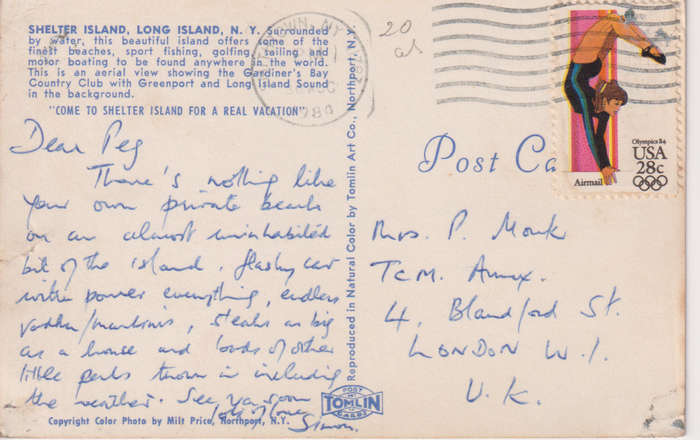 SHELTER ISLAND, LONG ISLAND, N. Y. Surrounded
by water, this beautiful island offers some of the
finest beaches, sport fishing, golfing, sailing and
motor boating to be found anywhere in the world.
This is an aerial view showing the Gardiner's Bay
Country Club with Greenport and Long Island Sound
in the background.
"COME TO SHELTER ISLAND FOR A REAL VACATION"
Dear Peg
There's nothing like
your own private beach
on an almost uninhabited
bit of the island. flashy car
with power everything, endless
vodka/martinis, steaks as big
as a house and loads of other
little perks thrown in including
the weather. See you soon
lots of love
Simon.
Copyright Color Photo by Milt Price, Northport, N.Y.
Reproduced in Natural Color by Tomlin Art Co., Northport, N.Y.
POST
TOMLIN
CARDS
20
Post Ca
Olympics 84
USA
28c
Airmail
Mrs. P. Monk
TCM. Annex.
4, Blandford St.
LONDON W.1.
U.K.